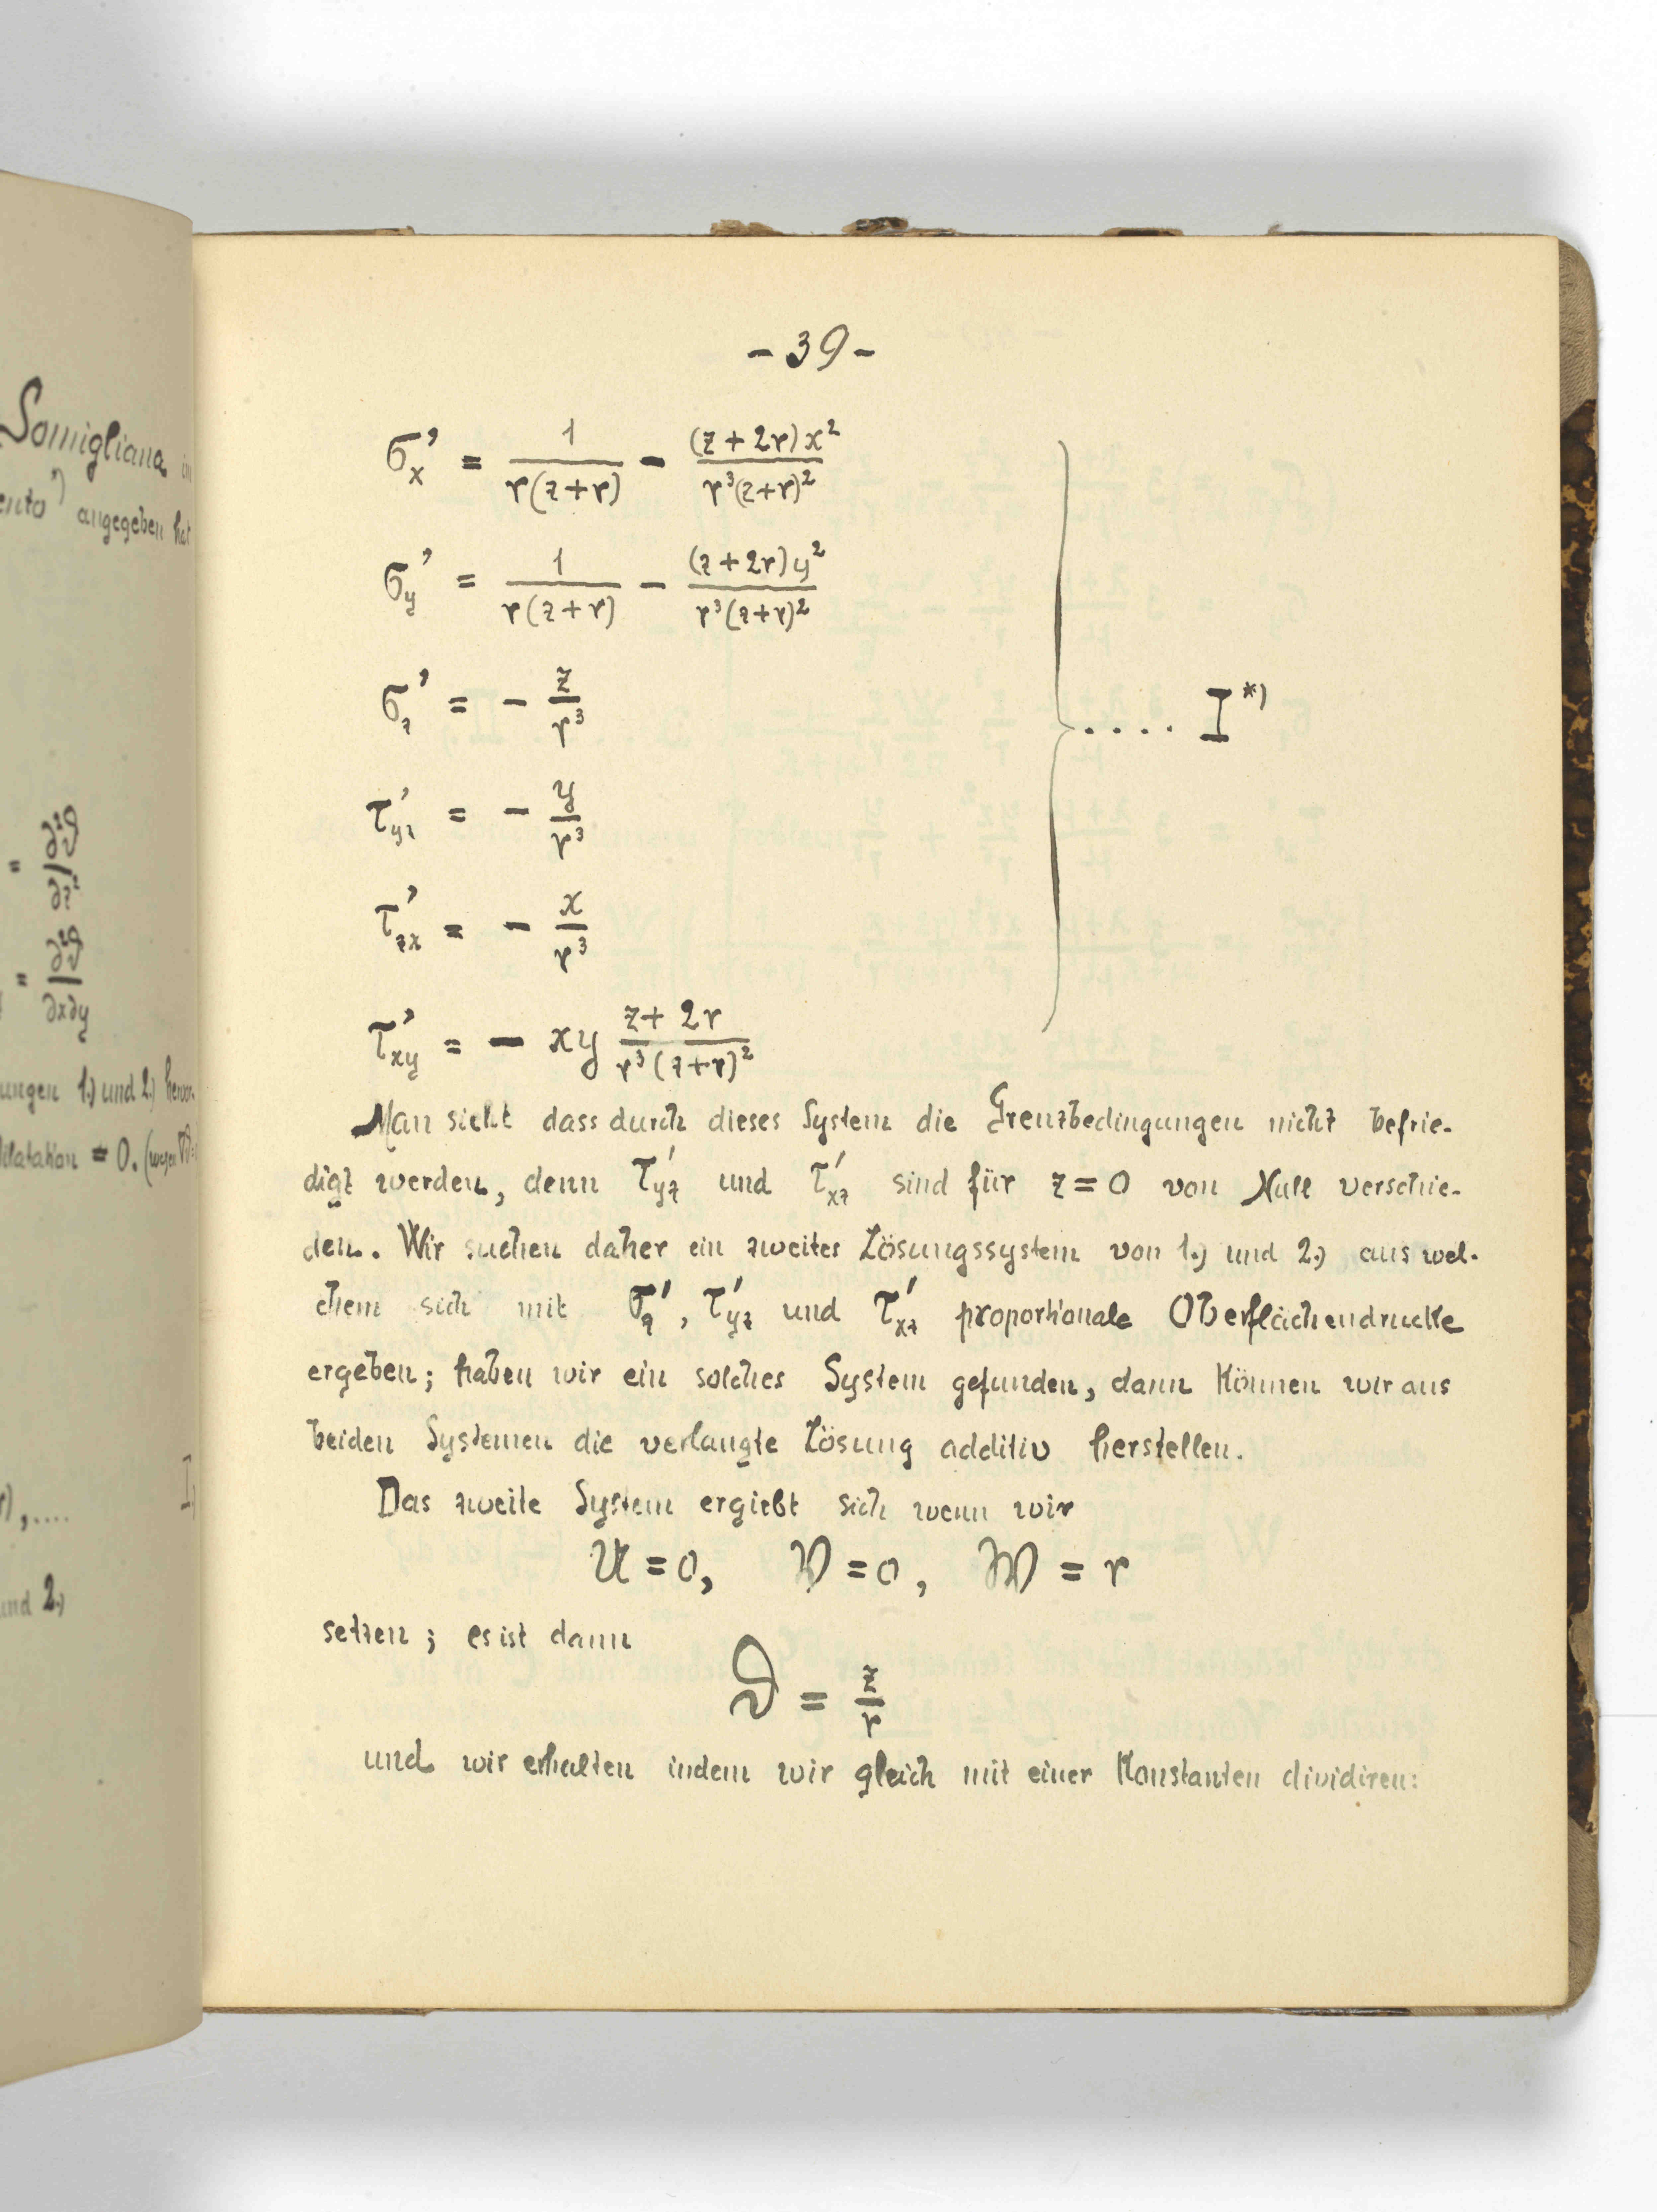 Somigliana in
ento*) angegeben hat
= ∂²ϑ/∂z²
= ∂²ϑ/∂x∂y
ungen 1.) und 2.) hervor-
dilatation = 0.
I,
und 2.)
- 39 -
σx' = 1/r(z+r) - (z+2r)x²/r³(z+r)²
σy' = 1/r(z+r) - (z+2r)y²/r³(z+r)²
σz' = - z/r³
τyz' = - y/r³
.... I*)
τzx' = - x/r³
τxy' = - xy z+2r/r³(z+r)²
Man sieht dass durch dieses System die Grenzbedingungen nicht befrie-
digt werden, denn τyz' und τxz' sind für z=0 von Null verschie-
den. Wir suchen daher ein zweites Lösungssystem von 1.) und 2.) aus wel-
chem sich mit σz', τyz' und τxz' proportionale Oberflächendrucke
ergeben; haben wir ein solches System gefunden, dann können wir aus
beiden Systemen die verlangte Lösung additiv herstellen.
Das zweite System ergiebt sich wenn wir
U = 0, V = 0, W = r
setzen; es ist dann
ϑ = z/r
und wir erhalten indem wir gleich mit einer Konstanten dividiren: